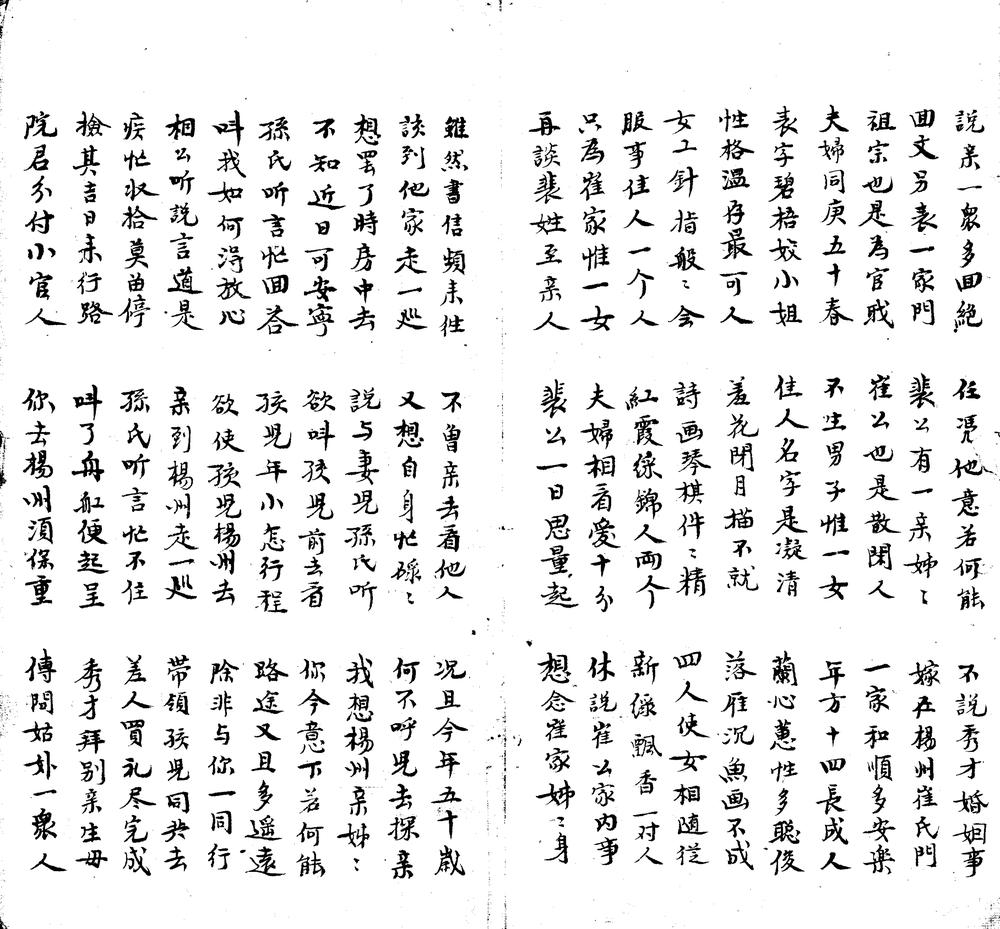 説亲一衆多回絶 任凴他意若何能 不説秀才婚姻事
回文另表一家門 裴公有一亲姊〻 嫁在楊州崔氏門
祖宗也是為官戝 崔公也是散閑人 一家和順多安樂
夫婦同庚五十春 不生男子惟一女 年方十四長成人
表字碧梧姣小姐 佳人名字是凝清 蘭心蕙性多聪俊
性格温存最可人 羞花閉月描不就 落雁沉魚画不成
女工針指般〻会 詩画琴棋件〻精 四人使女相随從
服事佳人一个人 紅霞綵錦人両个 新綠飄香一对人
只為崔家惟一女 夫婦相看愛十分 休説崔公家内事
再談裴姓至亲人 裴公一日思量起 想念崔家姊〻身
雖然書信頻来往 不曽亲去看他人 况且今年五十歳
談到他家走一巡 又想自身忙碌〻 何不呼児去探亲
想罢了時房中去 説与妻児孫氏听 我想楊州亲姊〻
不知近日可安寧 欲呌孩児前去看 你今意下若何能
孫氏听言忙回答 孩児年小怎行程 路途又且多遥遠
呌我如何淂放心 欲使孩児楊州去 除非与你一同行
相公听説言道是 亲到楊州走一巡 帶領孩児同共去
疾忙收拾莫畄停 孫氏听言忙不住 差人買礼尽完成
撿其吉日来行路 呌了舟舡便起呈 秀才拜别亲生母
院君分付小官人 你去楊州須保重 傳問姑外一衆人